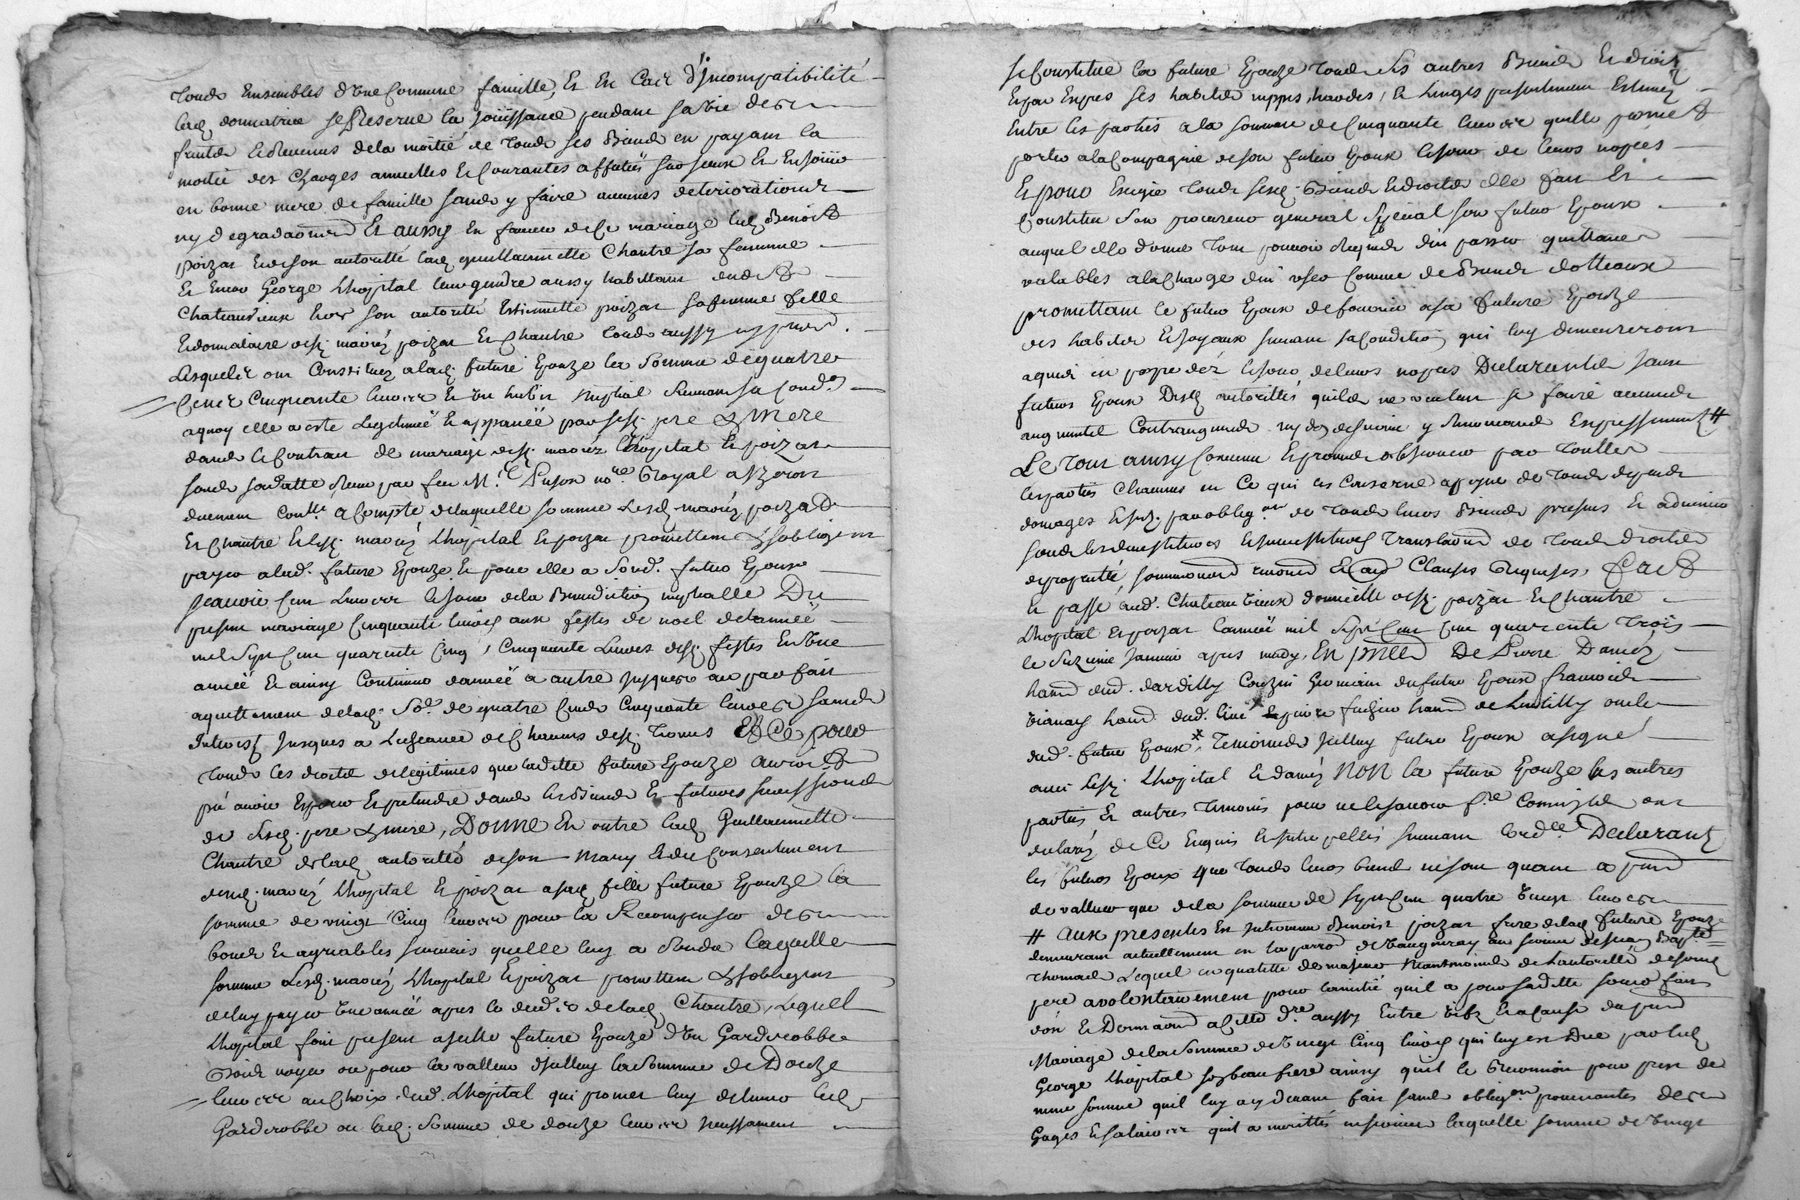 tous Ensembles d'une Commune famille, Et En Cas d'Jncompatibilité
lad donnatrice se Reserve la joüissance pendant sa vie des
fruits Et Revenus de la moitié de tous ses Biens en payant la
moitié des Charges annuelles Et Courantes Et
en bonne mere de famille sans y faire aucunes deteriorations
ny degradaons Et aussy En faveur de Ce mariage led Benoist
poizat Et de son autorité lad guillaumette Chantre sa femme
Et George Lhopital leur gendre aussy habittant dud
Chateauvieux son autorité Estiennette poizat sa femme fille
Et donnataire desd mariés poizat Et Chantre tous aussy
Lesquels ont Constitué a lad future Epouze la Somme de quatre
Cents Cinquante livres Et un habit nuptial Suivant sa Cond.on
aquoy elle a esté Legitimeë Et appaneë par sesd pere & Mere
dans le Contrat de mariage desd mariés Lhopital Et poizat
sous sa datte Receu par feu M.e no.re Royal a Yzeron
duement Con.llé acompte de laquelle somme Lesd mariés poizat
Et Chantre Et lesd mariés Lhopital Et poizat promettent & s'obligent
payer a lad. future Epouze Et pour elle a sond. futur Epoux
sçauoir Cent Livres le jour de la Benediction nuptialle Du
present mariage Cinquante livres aux festes de noel de l'anneë
mil Sept Cent quarente Cinq, Cinquante Livres esd. festes En une
anneë Et ainsy Continuer d'anneë a autre jusques au parfait
aquittement de lad. So.e de quatre Cents Cinquante livres sans
Interest jusques a Lescheance de Chacuns desd. termes Et Ce pour
tous les droits de legitimes que laditte future Epouze auroit
pû avoir Et pretendre dans les Biens Et futures successions
de sesd. pere & mere, Donne En outre lad Guillaumette
Chantre de lad. autorité de son Mary Et du Consentement
desd. mariés Lhopital Et poizat a sad fille future Epouze la
somme de vingt Cinq livres pour la Recompenser des
bons Et agreables services quelle luy a Rendu Laquelle
somme Lesd. mariés Lhopital Et poizat promettent & s'obligent
de luy payer une anneë apres le deces de lad Chantre, Lequel
Lhopital fait present a ladte future Epouze d'un Garderobbe
Bois noyer ou pour la valleur d'Icelluy la Somme de Douze
livres au Choix dud. Lhopital qui promet luy delivrer led
Garderobbe ou lad. Somme de douze livres
se Constitue la future Epouze tous ses autres Biens Et droits
Et par Expres ses habits nippes, hardes, & Linges presentement Estimés
Entre les parties a la somme de Cinquante livres quelle promet
porter a la Compagnie de son futur Epoux le jour de leurs nopces
Et pour Exiger tous sesd. Biens Et droits elle fait Et
Constitue Son procureur general Special son futur Epoux
auquel elle donne tout pouvoir d'en passer quittances
valables a la Charge d'en user Comme de Biens dotteaux
promettant le futur Epoux de fournir a sa future Epouze
des habits Et joyaux suivant sa Condition, qui luy demeureront
aquis en propre dez le jour de leurs nopces Declarants les
futurs Epoux Desd. autorittés quils ne veulent se faire aucuns
augments Contraugments ny y Renonçant Expressement #
Le tout ainsy Convenu Et promis observer par touttes
les parties Chacunes en Ce qui les Concerne a peyne de tous depends
domages Et par oblig.on de tous leurs Biens presents Et advenir
sous les Et translations de tous droits
de proprieté, soumissions Et Clauses Requises. Fait
Et passé aud. Chateauvieux domicille desd. poizat Et Chantre
Lhopital Et poizat l'anneë mil Sept Cent quarente trois
le Janvier apres midy, En presence De Pierre Daniés
habi.t dud. dardilly Couzin Germain du futur Epoux françois
vianay habi.t dud. lieu pierre habi.t de Lentilly oncle
dud. futur Epoux* temoins Jcelluy futur Epoux a signé
avec lesd. Lhopital Et daniés NON la future Epouze les autres
parties Et autres temoins pour ne le scavoir f.re Comme ils ont
declarés de Ce Enquis Et Suivant Lord.ce Declarants
les futurs Epoux que tous leurs biens ne sont quant a present
de valleur que de la somme de Sept Cent quatre vingt livres
# aux presentes Est Intervenu Benoist poizat frere de lad future Epouze
demeurant actuellement en la parroisse de Vaugneray au service de Jean Bap.te
thomas Lequel en qualitté de majeur Neantmoins de Lautorité de son
pere a volontairement pour lamitié quil a pour saditte soeur fait
don Et Donnaon a Cette d.re aussy Entre vifs Et a Cause du present
Mariage de la Somme de vingt Cinq livres qui luy est Due par led
George Lhopital son beaufrere ainsy quil le Reconnoit pour prest de
meme somme quil luy a cy devant fait sans oblig.on provenantes de ses
Gages Et salaires quil a meritté laquelle somme de vingt